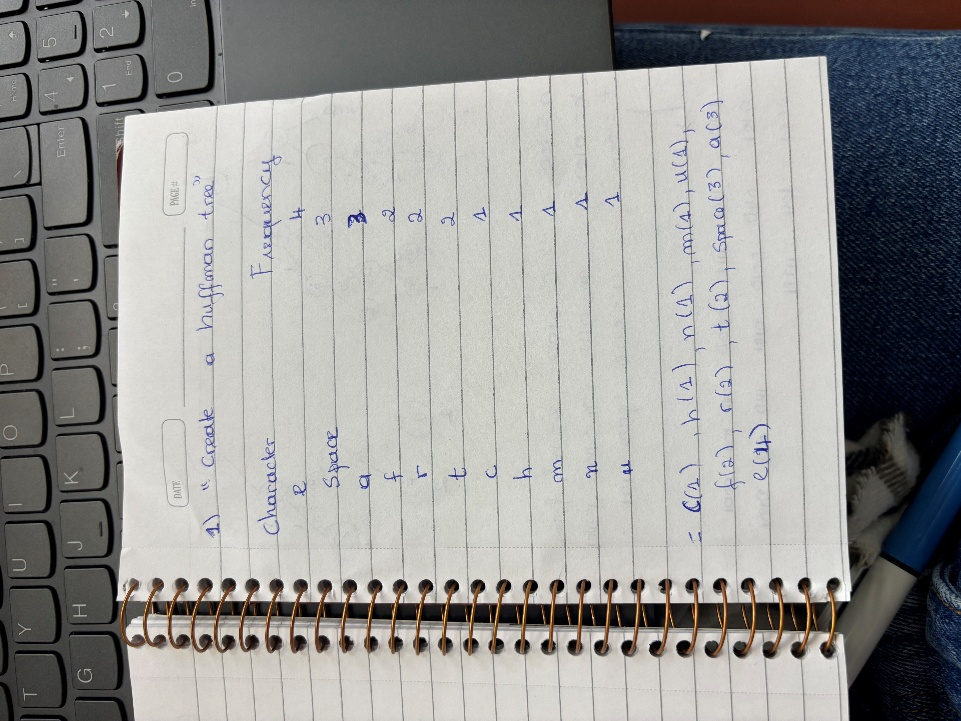 DATE PAGE #
1) "Create a huffman tree"
Character Frequency
e 4
Space 3
a 3
f 2
r 2
t 2
c 1
h 1
m 1
n 1
u 1
= c(1), h(1), n(1), m(1), u(1),
f(2), r(2), t(2), space(3), a(3)
e(4)
T
Y
U
I
O
P
G
H
J
K
L
Enter
Shift
0
1
End
2
4
5